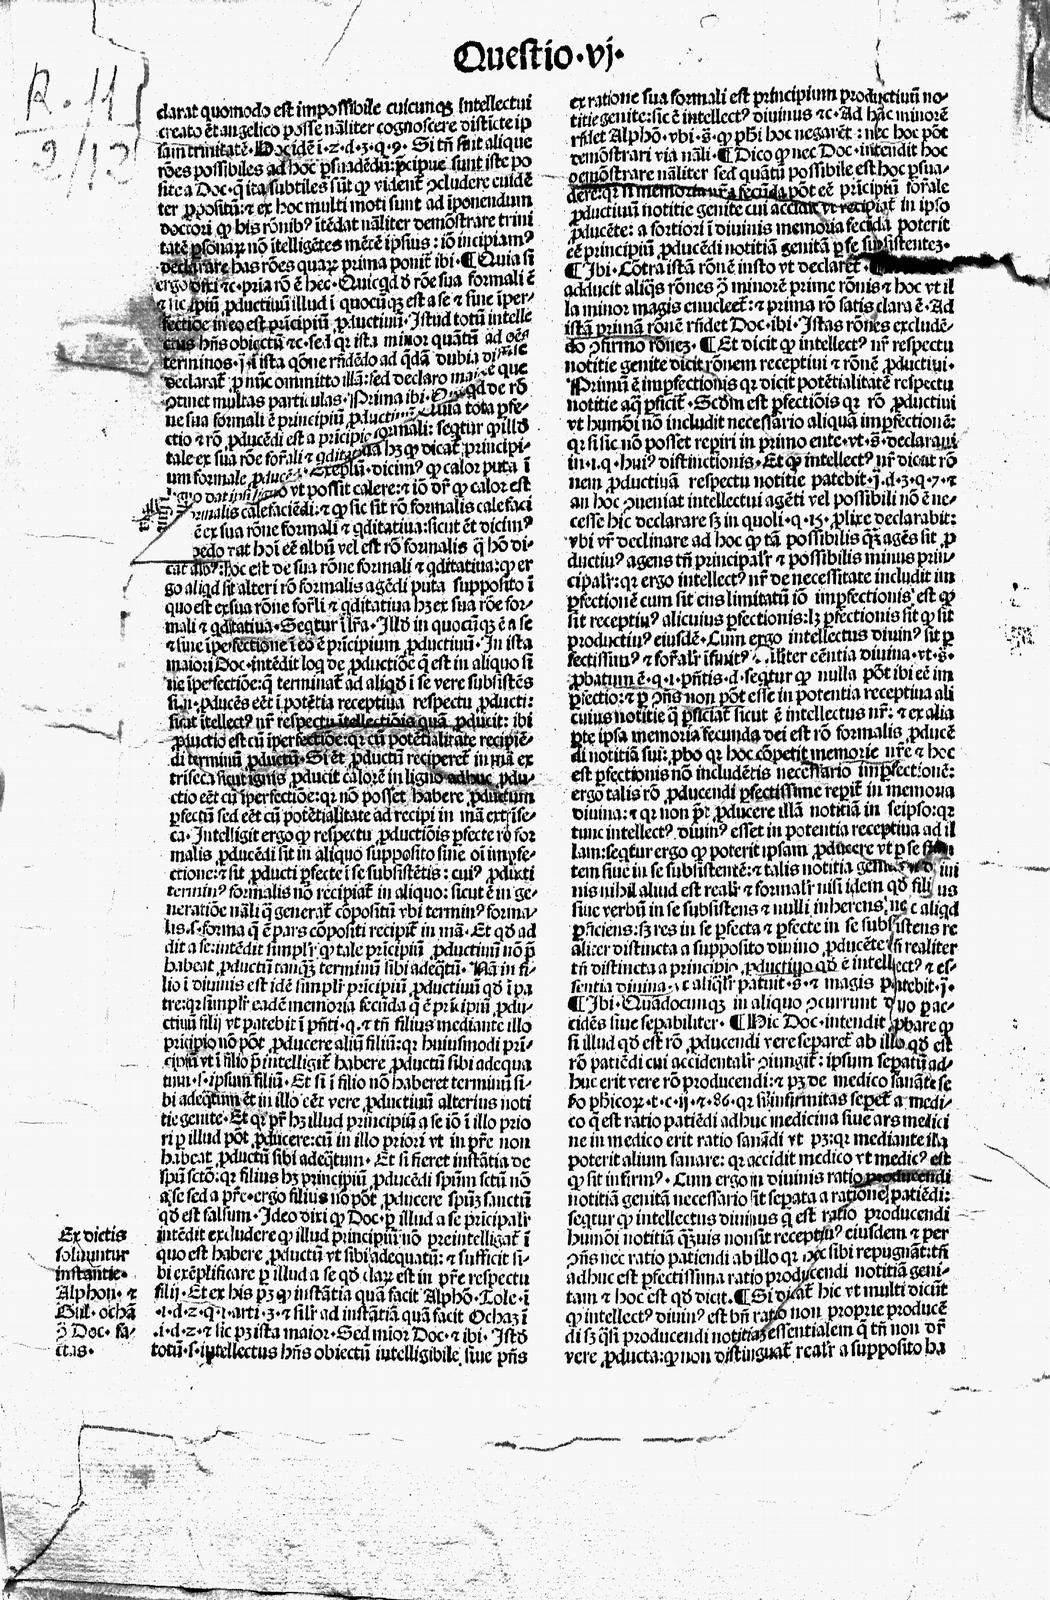 Questio·vj·
R. 11
2/12
clarat quomodo est impossibile cuicunqꝫ intellectui
creato ēt angelico posse nāliter cognoscere distīcte ip
sam trinitatē· Hoc idē ī·2·d·3·q·9· Si tn̄ sint alique
rōes possibiles ad hoc ꝑsuadēdū: p̄cipue sunt iste po
site a Doc· q̄ ita subtiles sūt qꝙ vident᷑ ꝯcludere euidē
ter ꝓpositū: ⁊ ex hoc multi moti sunt ad īponendum
doctori qꝙ his rōnibꝰ ītēdat nāliter demōstrare trini
tatē ꝑsonaꝝ nō ītelligētes mētē ipsius: iō incipiamꝰ
declarare has rōes quaꝝ prima ponit᷑ ibi· ¶ Quia si
ergo dixi ⁊c· pria rō ē hec· Quicqd d̄ rōe sua formali ē
fectiōe in eo est prīcipiū ꝓductiuū· Istud totū intelle
ctus hn̄s obiectū ⁊c· sed qr ista minor quātū ad oēs
terminos·
declarat᷑ ꝓ nūc ommitto illā: sed declaro
ptinet multas particulas· Prima ibi·
ne sua formali ē principiū ꝓductiuū· Quia tota ꝑfe-
ctio ⁊ rō ꝓducēdi est a prīcipio formali: seqtur qꝙ illd̄
tale ex sua rōe for̄ali ⁊ qditatiua hꝫ qꝙ dicat᷑ principi-
um formale Exēplū· dicimꝰ qꝙ calor puta ī
vt possit calere: ⁊ iō dr̄ qꝙ calor est
calefaciēdi: ⁊ qꝙ sic sit rō formalis calefaci
ē ex sua rōne formali ⁊ qditatiua: sicut ēt dicimꝰ
hoī eē albū vel est rō formalis q̄ hō di-
cat᷑ albꝰ: hoc est de sua rōne formali ⁊ qditatiua: qꝙ er
go aliqd sit alteri rō formalis agēdi puta supposito ī
quo est ex sua rōne for̄li ⁊ qditatiua hꝫ ex sua rōe for-
mali ⁊ qditatiua· Seqtur ī lr̄a· Illd̄ in quocūqꝫ ē a se
⁊ sine īperfectiōe ī eo ē prīcipium ꝓductiuū· In ista
maiori Doc· intēdit loq̄ de ꝓductiōe q̄ est in aliquo si
ne īperfectiōe: q̄ terminat᷑ ad aliqd̄ ī se vere subsistēs
si·n· ꝓducēs eēt ī potētia receptiua respectu ꝓducti:
sicut ītellectꝰ nr̄ respectu ītellectiōis quā ꝓducit: ibi
ꝓductio est cū īperfectiōe: qr cū potētialitate recipiē-
di terminū ꝓductū· Si ēt ꝓductū reciperet᷑ in mā ex
triseca sicut ignis ꝓducit calorē in ligno adhuc ꝓdu-
ctio eēt cū īperfectiōe: qr nō posset habere ꝓductum
ꝑfectū sed eēt cū potētialitate ad recipi in mā extrīse-
ca· Intelligit ergo qꝙ respectu ꝓductiōis ꝑfecte rō for
malis ꝓducēdi sit in aliquo supposito sine oī imꝑfe-
ctione: ⁊ sit ꝓducti ꝑfecte ī se subsistētis: cuiꝰ ꝓducti
terminꝰ formalis nō recipiat᷑ in aliquo: sicut ē in ge-
neratiōe nāli q̄ generat᷑ cōpositū vbi terminꝰ forma-
lis·s· forma q̄ ē pars cōpositi recipit᷑ in mā· Et qd̄ ad
dit a se: intēdit simplr̄ qꝙ tale prīcipiū ꝓductiuū nō p̄
habeat ꝓductū tanqꝫ terminū sibi adeqtū· Nā in fi-
lio ī diuinis est idē simplr̄ prīcipiū ꝓductiuū qd̄ ī pa
tre: qr simplr̄ eadē memoria fecūda q̄ ē prīcipiū ꝓdu-
ctiuū filij vt patebit ī pn̄ti·q· ⁊ tn̄ filius mediante illo
prīcipio nō pōt ꝓducere aliū filiū: qr huiusmodi prī-
cipiū vt ī filio p̄intelligit᷑ habere ꝓductū sibi adequa
tum·s· ipsum filiū· Et si ī filio nō haberet terminū si-
bi adeqtum ēt in illo eēt vere ꝓductiuū alterius noti
tie genite· Et qr pr̄ hꝫ illud principiū a se iō ī illo prio
ri ꝑ illud pōt ꝓducere: cū in illo priori vt in pr̄e non
habeat ꝓductū sibi adeqtum· Et si fieret instātia de
spū sctō: qr filius hꝫ principiū ꝓducēdi spūm sctū nō
a se sed a pr̄e· ergo filius nō pōt ꝓducere spūꝫ sanctū
qd̄ est falsum· Ideo dixi qꝙ Doc· ꝑ illud a se prīcipalr̄
intēdit excludere qꝙ illud principiū nō preintelligat᷑ ī
quo est habere ꝓductū vt sibi adequatū: ⁊ sufficit si-
bi exēplificare ꝑ illud a se qd̄ claꝝ est in pr̄e respectu
filij· Et ex his pꝫ qꝙ instātia quā facit Alphō· Tole· ī
·1·d·2·q·1·arti·3· ⁊ silr̄ ad instātiā quā facit Ochaꝫ ī
·1·d·2· ⁊ sic pꝫ ista maior· Sed mīor Doc· ē ibi· Istd̄
totū·s· intellectus hn̄s obiectū intelligibile siue p̄ns
Ex dictis
soluuntur
instantie·
Alphon· ⁊
Guil· ochā
ꝯ̄ Doc· fa-
ctas·
ex ratione sua formali est principium productiuū no-
titie genite: sic ē intellectꝰ diuinus ⁊c· Ad hāc minorē
rn̄det Alphō· vbi·s̄· qꝙ phi hoc negarēt: nec hoc pōt
demōstrari via nāli· ¶ Dico qꝙ nec Doc· intendit hoc
demōstrare nāliter sed quātū possibile est hoc ꝑsua-
dere: qr si memoria nr̄a fecūda pōt eē prīcipiū for̄ale
ꝓductiuū notitie genite cui accidit vt recipiat᷑ in ipso
ꝓducēte: a fortiori ī diuinis memoria fecūda poterit
eē principiū ꝓducēdi notitiā genitā ꝑ se subsistentez·
¶ Ibi· Cōtra istā rōnē insto vt declaret᷑·
adducit aliqs rōnes ꝯ̄ minorē prime rōnis ⁊ hoc vt il
la minor magis enucleet᷑: ⁊ prima rō satis clara ē· Ad
istā primā rōnē rn̄det Doc· ibi· Istas rōnes excludē-
do ꝯfirmo rōneꝫ· ¶ Et dicit qꝙ intellectꝰ nr̄ respectu
notitie genite dicit rōnem receptiui ⁊ rōnē ꝓductiui·
Primū ē imꝑfectionis qr dicit potētialitatē respectu
notitie a q̄ ꝑficit᷑· Scdm est ꝑfectiōis qr rō ꝓductiui
vt humōi nō includit necessario aliquā imꝑfectionē:
qr si sic nō posset reꝑiri in primo ente· vt·s̄· declaraui
in·1·q· huiꝰ distinctionis· Et qꝙ intellectꝰ nr̄ dicat rō
nem ꝓductiuā respectu notitie patebit·j·d·3·q·7· ⁊
an hoc ꝯueniat intellectui agēti vel possibili nō ē ne-
cesse hic declarare sꝫ in quoli·q·15· ꝓlixe declarabit:
vbi vr̄ declinare ad hoc qꝙ tā possibilis qꝫ agēs sit ꝓ
ductiuꝰ agens tn̄ principalr̄ ⁊ possibilis minus prin-
cipalr̄: qr ergo intellectꝰ nr̄ de necessitate includit im
ꝑfectionē cum sit ens limitatū iō imꝑfectionis est qꝙ
sit receptiuꝰ alicuius ꝑfectionis: lꝫ ꝑfectionis sit qꝙ sit
productiuꝰ eiusdē· Cum ergo intellectus diuinꝰ sit ꝑ
fectissimꝰ ⁊ for̄alr̄ īfinitꝰ essentia diuina· vt·s̄·
ꝓbatum ē·q·1· pn̄tis·d· seqtur qꝙ nulla pōt ibi eē im
ꝑfectio: ⁊ ꝑ ꝯn̄s non pōt esse in potentia receptiua ali
cuius notitie q̄ ꝑficiat᷑ sicut ē intellectus nr̄: ⁊ ex alia
pte ipsa memoria fecunda dei est rō formalis ꝓducē
di notitiā sui: ꝓbo qr hoc cōpetit memorie nr̄e ⁊ hoc
est ꝑfectionis nō includētis necessario imꝑfectionē:
ergo talis rō ꝓducendi ꝑfectissime reꝑit᷑ in memoria
diuina: ⁊ qr non pr̄ ꝓducere illā notitiā in seipso: qr
tunc intellectꝰ diuinꝰ esset in potentia receptiua ad il
lam: seqtur ergo qꝙ poterit ipsam ꝓducere vt ꝑ se
tem siue in se subsistentē: ⁊ talis notitia
nis nihil aliud est realr̄ ⁊ formalr̄ nisi idem qd̄ filius
siue verbū in se subsistens ⁊ nulli inherens nec aliqd
ꝑficiens: sꝫ res in se ꝑfecta ⁊ ꝑfecte in se subsistens re
aliter distincta a supposito diuino ꝓducēte realiter
tn̄ distincta a principio ꝓductiuo qd̄ ē intellectꝰ ⁊ es-
sentia diuina: vt aliqlr̄ patuit·s̄· ⁊ magis patebit·j·
¶ Ibi· Quādocunqꝫ in aliquo ꝯcurrunt duo pac-
cidēs siue seꝑabiliter· ¶ Hic Doc· intendit ꝓbare qꝙ
si illud qd̄ est rō ꝓducendi vere separet᷑ ab illo qd̄ est
rō patiēdi cui accidentalr̄ ꝯiungit᷑: ipsum seꝑatū ad-
huc erit vere rō producendi: ⁊ pꝫ de medico sanāte se
ꝑō phicoꝝ·t·c·ij· ⁊·86· qr si infirmitas seꝑet᷑ a medi-
co q̄ est ratio patiēdi adhuc medicina siue ars medici
ne in medico erit ratio sanādi vt pꝫ: qr mediante illa
poterit alium sanare: qr accidit medico vt medicꝰ est
qꝙ sit infirmꝰ· Cum ergo in diuinis ratio producendi
notitiā genitā necessario sit seꝑata a ratione patiēdi:
seqtur qꝙ intellectus diuinus q̄ est ratio producendi
humōi notitiā qꝫuis non sit receptiuꝰ eiusdem ⁊ per
ꝯn̄s nec ratio patiendi ab illo qr hoc sibi repugnat: tn̄
adhuc est ꝑfectissima ratio producendi notitiā geni-
tam ⁊ hoc est qd̄ dicit· ¶ Si dicat᷑ hic vt multi dicūt
qꝙ intellectꝰ diuinꝰ est bn̄ ratio non proprie producē
di sꝫ q̄si producendi notitiaꝫ essentialem q̄ tn̄ non dr̄
vere ꝓducta: qꝙ non distinguat᷑ realr̄ a supposito ha